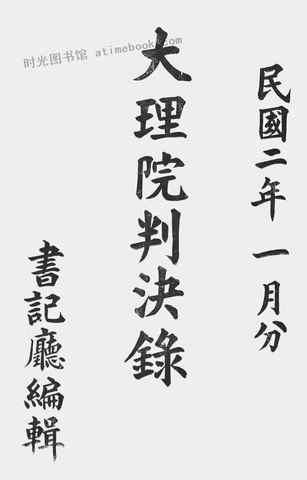 民國二年一月分
大理院判決錄
書記廳編輯
时光图书馆 atimebook.com